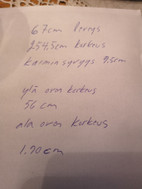 67cm leveys
254.5cm korkeus
karminsyvyys 9.5cm
ylä oven korkeus
56 cm
ala oven korkeus
1.90cm